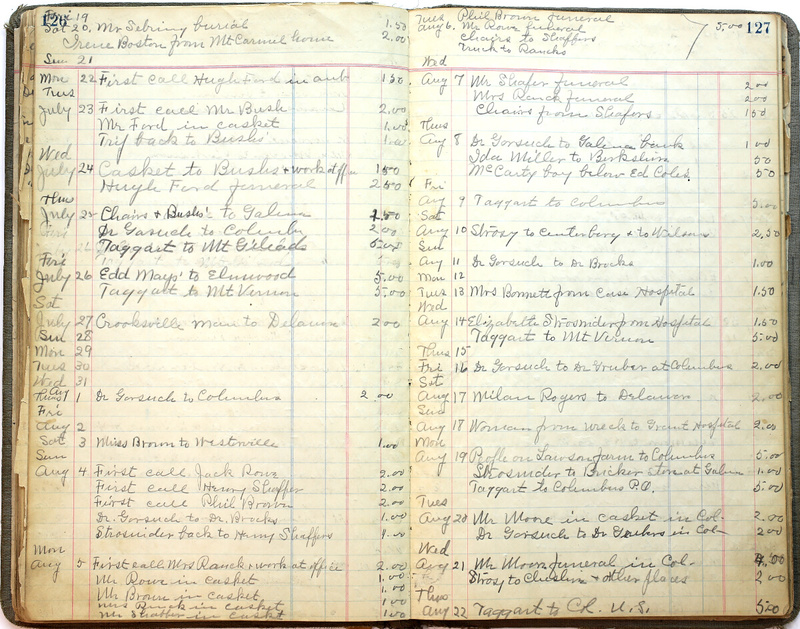 126
Fri 19
Sat 20, Mr Sebring burial 1.50
Irene Boston from Mt Carmel home 2.00
Sun 21
Mon 22 First call Hugh Ford in amb 1 50
Tues
July 23 First call Mr Bush 2.00
Mr Ford in casket 1.00
Trip back to Bushs' 1.00
Wed
July 24 Casket to Bushs + work at office 1 50
Hugh Ford funeral 2 50
Thur
July 25 Chairs + Bushs' to Galena 1.50
Dr Gorsuch to Columbus 2.00
Taggart to Mt Gileads 5.00
Fri
July 26 Edd Mays' to Elmwood 5.00
Taggart to Mt Vernon 5.00
Sat
July 27 Crooksville man to Delaware 2 00
Sun 28
Mon 29
Tues 30
Wed 31
Aug
Thurs 1 Dr Gorsuch to Columbus 2 00
Fri
Aug 2
Sat 3 Miss Brown to Westerville 1.00
Sun
Aug 4 First call Jack Rowe 2.00
First call Henry Shaffer 2.00
First call Phil Brown 2.00
Dr. Gorsuch to Dr. Brocks 1.00
Strosnider back to Henry Shaffers 1.00
Mon
Aug 5 First call Mrs Ranck + work at office 2.00
Mr Rowe in casket 1.00
Mr Brown in casket 1 00
Mrs Ranck in casket 1 00
Mr Shaffer in casket 1 00
127
Tues Phil Brown funeral
Aug 6. Mr Rowe funeral 5.00
Chairs to Shaffers
Truck to Rancks
Wed
Aug 7 Mr Shafer funeral 2 00
Mrs Ranck funeral 2 00
Chairs from Shafers 1 50
Thus
Aug 8 Dr Gorsuch to Galena bank 1 00
Ida Miller to Berkshire 50
McCarty boy below Ed Coles 50
Fri
Aug 9 Taggart to Columbus 5.00
Sat
Aug 10 Strosy to Centerberg + to Wilsons 2.50
Sun
Aug 11 Dr Gorsuch to Dr Brocks 1.00
Mon 12
Tues 13 Mrs Bonnett from Case Hospital 1.50
Wed
Aug 14 Elizabeth Strosnider from Hospital 1.50
Taggart to Mt Vernon 5.00
Thus 15
Fri 16 Dr Gorsuch to Dr Gruber at Columbus 2.00
Sat
Aug 17 Milan Rogers to Delaware 2.00
Sun
Aug 17 Woman from wreck to Grant Hospital 2.00
Mon
Aug 19 on Lawson farm to Columbus 5.00
Strosnider to Bricker store at Galena 1.00
Taggart to Columbus P.O. 5.00
Tues
Aug 20 Mr Moore in casket in Col. 2.00
Dr Gorsuch to Dr Grubers in Col 2 00
Wed
Aug 21 Mr Moore funeral in Col. 4.00
Strosy to Cheshire + other places 2 00
Thus
Aug 22 Taggart to Col. U.S. 5.00